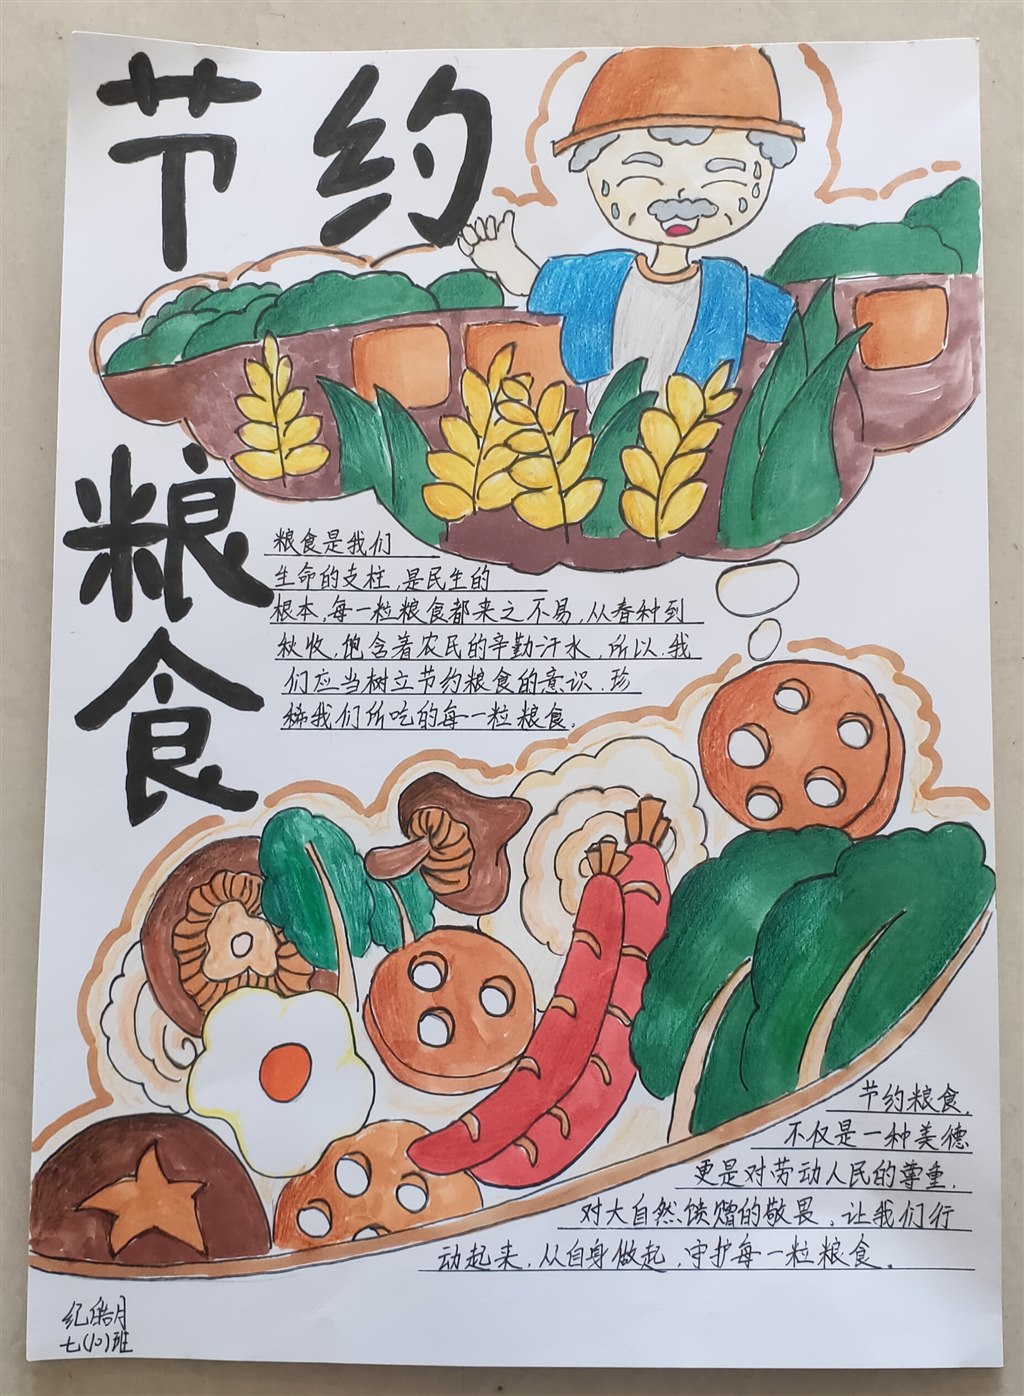 节约
粮食
粮食是我们
生命的支柱,是民生的
根本,每一粒粮食都来之不易,从春种到
秋收,饱含着农民的辛勤汗水,所以,我
们应当树立节约粮食的意识,珍
稀我们所吃的每一粒粮食。
节约粮食,
不仅是一种美德
更是对劳动人民的尊重,
对大自然馈赠的敬畏,让我们行
动起来,从自身做起,守护每一粒粮食。
纪皓月
七(10)班